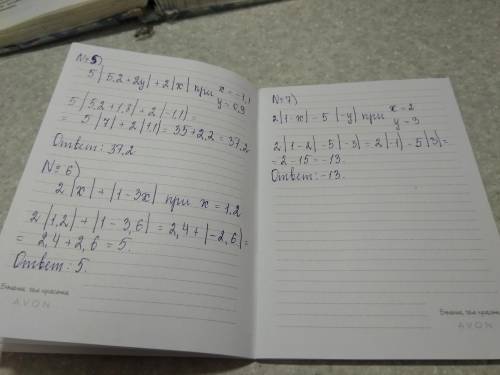 №5)
5|5,2+2y|+2|x| при x=-1,1
y=0,9
5|5,2+1,8|+2|-1,1|=
= 5|7|+2|1,1|=35+2,2=37,2
Ответ: 37,2
№6)
2|x|+|1-3x| при x=1,2
2|1,2|+|1-3,6|=2,4+|-2,6|=
= 2,4+2,6=5.
Ответ: 5.
AVON
№7)
2|1-x|-5|-y| при x=2
y=3
2|1-2|-5|-3|=2|-1|-5|3|=
=2-15=-13.
Ответ: -13.
AVON